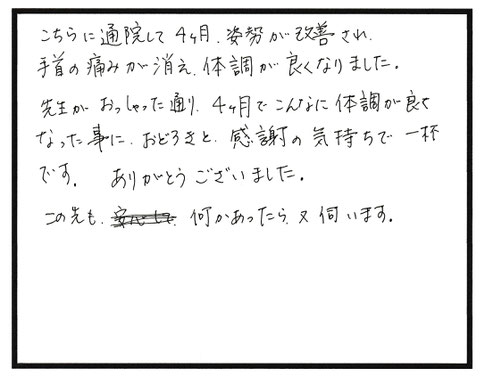 こちらに通院して4ヶ月、姿勢が改善され、
手首の痛みが消え、体調が良くなりました。
先生がおっしゃった通り、4ヶ月でこんなに体調が良く
なった事に、おどろきと、感謝の気持ちで一杯
です。 ありがとうございました。
この先も、何かあったら、又伺います。